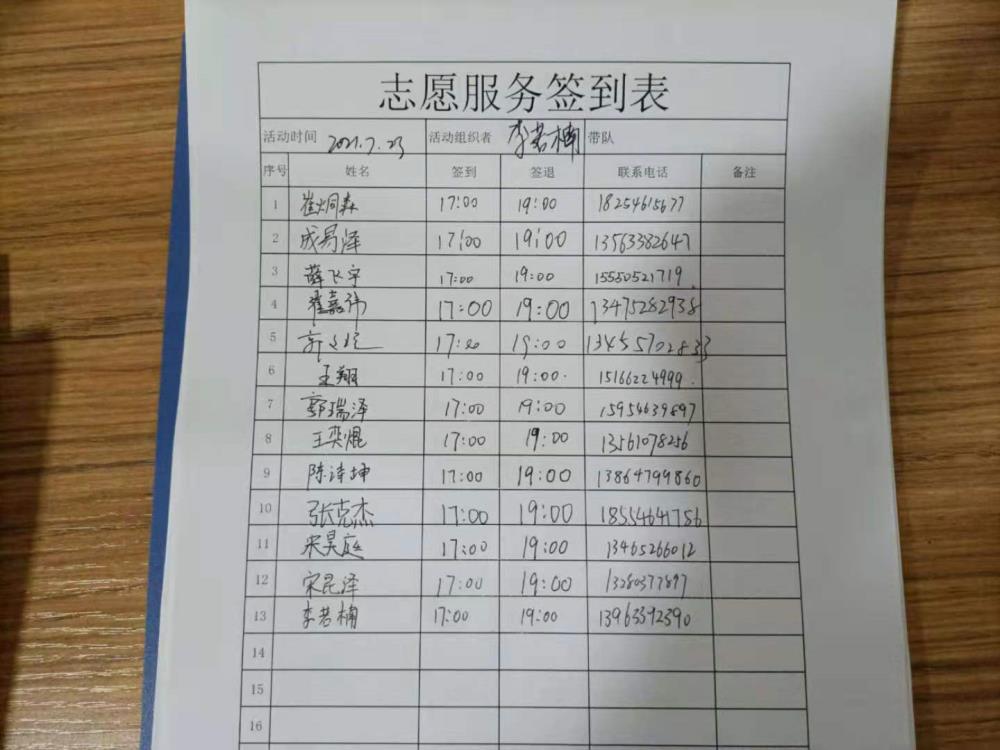 志愿服务签到表
活动时间 2021.7.23 活动组织者 李若楠 带队
序号 姓名 签到 签退 联系电话 备注
1 崔炯森 17:00 19:00 18254615677
2 成易泽 17:00 19:00 13563382647
3 薛飞宇 17:00 19:00 15550521719
4 崔嘉祎 17:00 19:00 13475282938
5 17:00 19:00 13455702833
6 王翔 17:00 19:00 15166224999
7 郭瑞泽 17:00 19:00 15954639897
8 王奕焜 17:00 19:00 13561078256
9 陈诗坤 17:00 19:00 13864799860
10 张克杰 17:00 19:00 18554641756
11 宋昊庭 17:00 19:00 13465266012
12 宋昆泽 17:00 19:00 13280377897
13 李若楠 17:00 19:00 13963392390
14
15
16